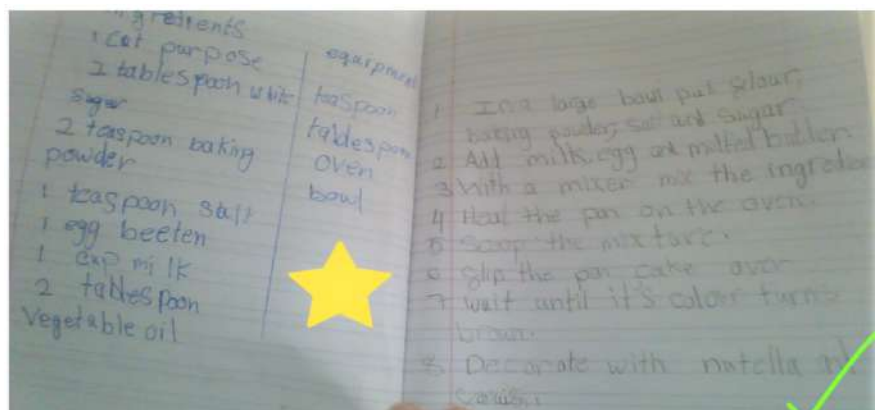 ingredients
1 cat purpose
2 tablespoon white
sugar
2 teaspoon baking
powder
1 teaspoon salt
1 egg beeten
1 cup milk
2 tablespoon
Vegetable oil
equipment
teaspoon
tablespoon
oven
bowl
1 In a large bowl put flour,
baking powder, salt and sugar.
2 Add milk, egg and melted butter
3 With a mixer mix the ingredien
4 Heat the pan on the oven.
5 Scoop the mixture.
6 flip the pan cake over
7 wait until it's colour turns
brown.
8 Decorate with nutella